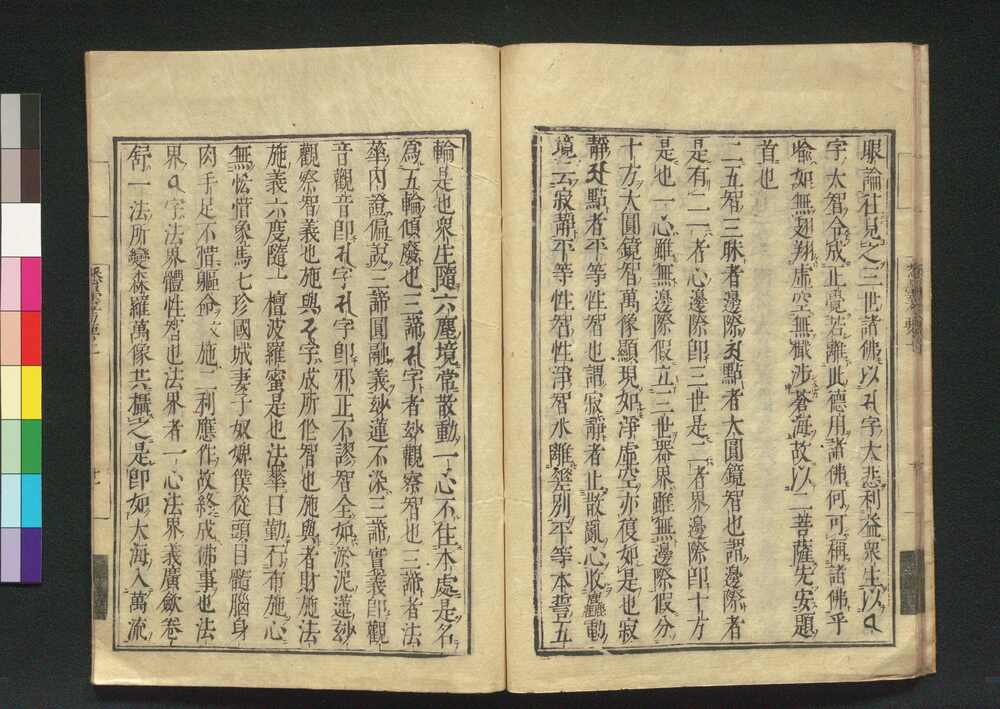 眼論社見之三世諸佛以ꣽ字大悲利益衆生以ꣽ
字大智令成正覺若離此德用諸佛何可稱諸佛乎
喩如無翅翔虛空無檝涉蒼海故以二菩薩先安題
首也
二五智三昧者邊際點者大圓鏡智也謂邊際者
是有二一者心邊際卽三世是二者界邊際卽十方
是也一心雖無邊際假立三世器界雖無邊際假分
十方大圓鏡智萬像顯現如淨虛空亦復如是也寂
靜點者平等性智也謂寂靜者止散亂心收麤動
境云寂靜平等性智性淨智水離差別平等本誓五
輪是也衆生隨六塵境常散動一心不住本處是名
爲五輪傾廢也三諦字者妙觀察智也三諦者法
華內證偏說二諦圓融義妙蓮不染三諦實義卽觀
音觀音卽字字卽邪正不謬智全如淤泥蓮妙
觀察智義也施與字成所作智也施與者財施法
施義六度隨一檀波羅蜜是也法華曰勤行布施心
無恡惜象馬七珍國城妻子奴婢僕從頭目髓腦身
肉手足不惜軀命文施二利應作故終成佛事也法
界字法界體性智也法界者一心法界義廣歛卷
舒一法所變森羅萬像共攝之是卽如大海入萬流